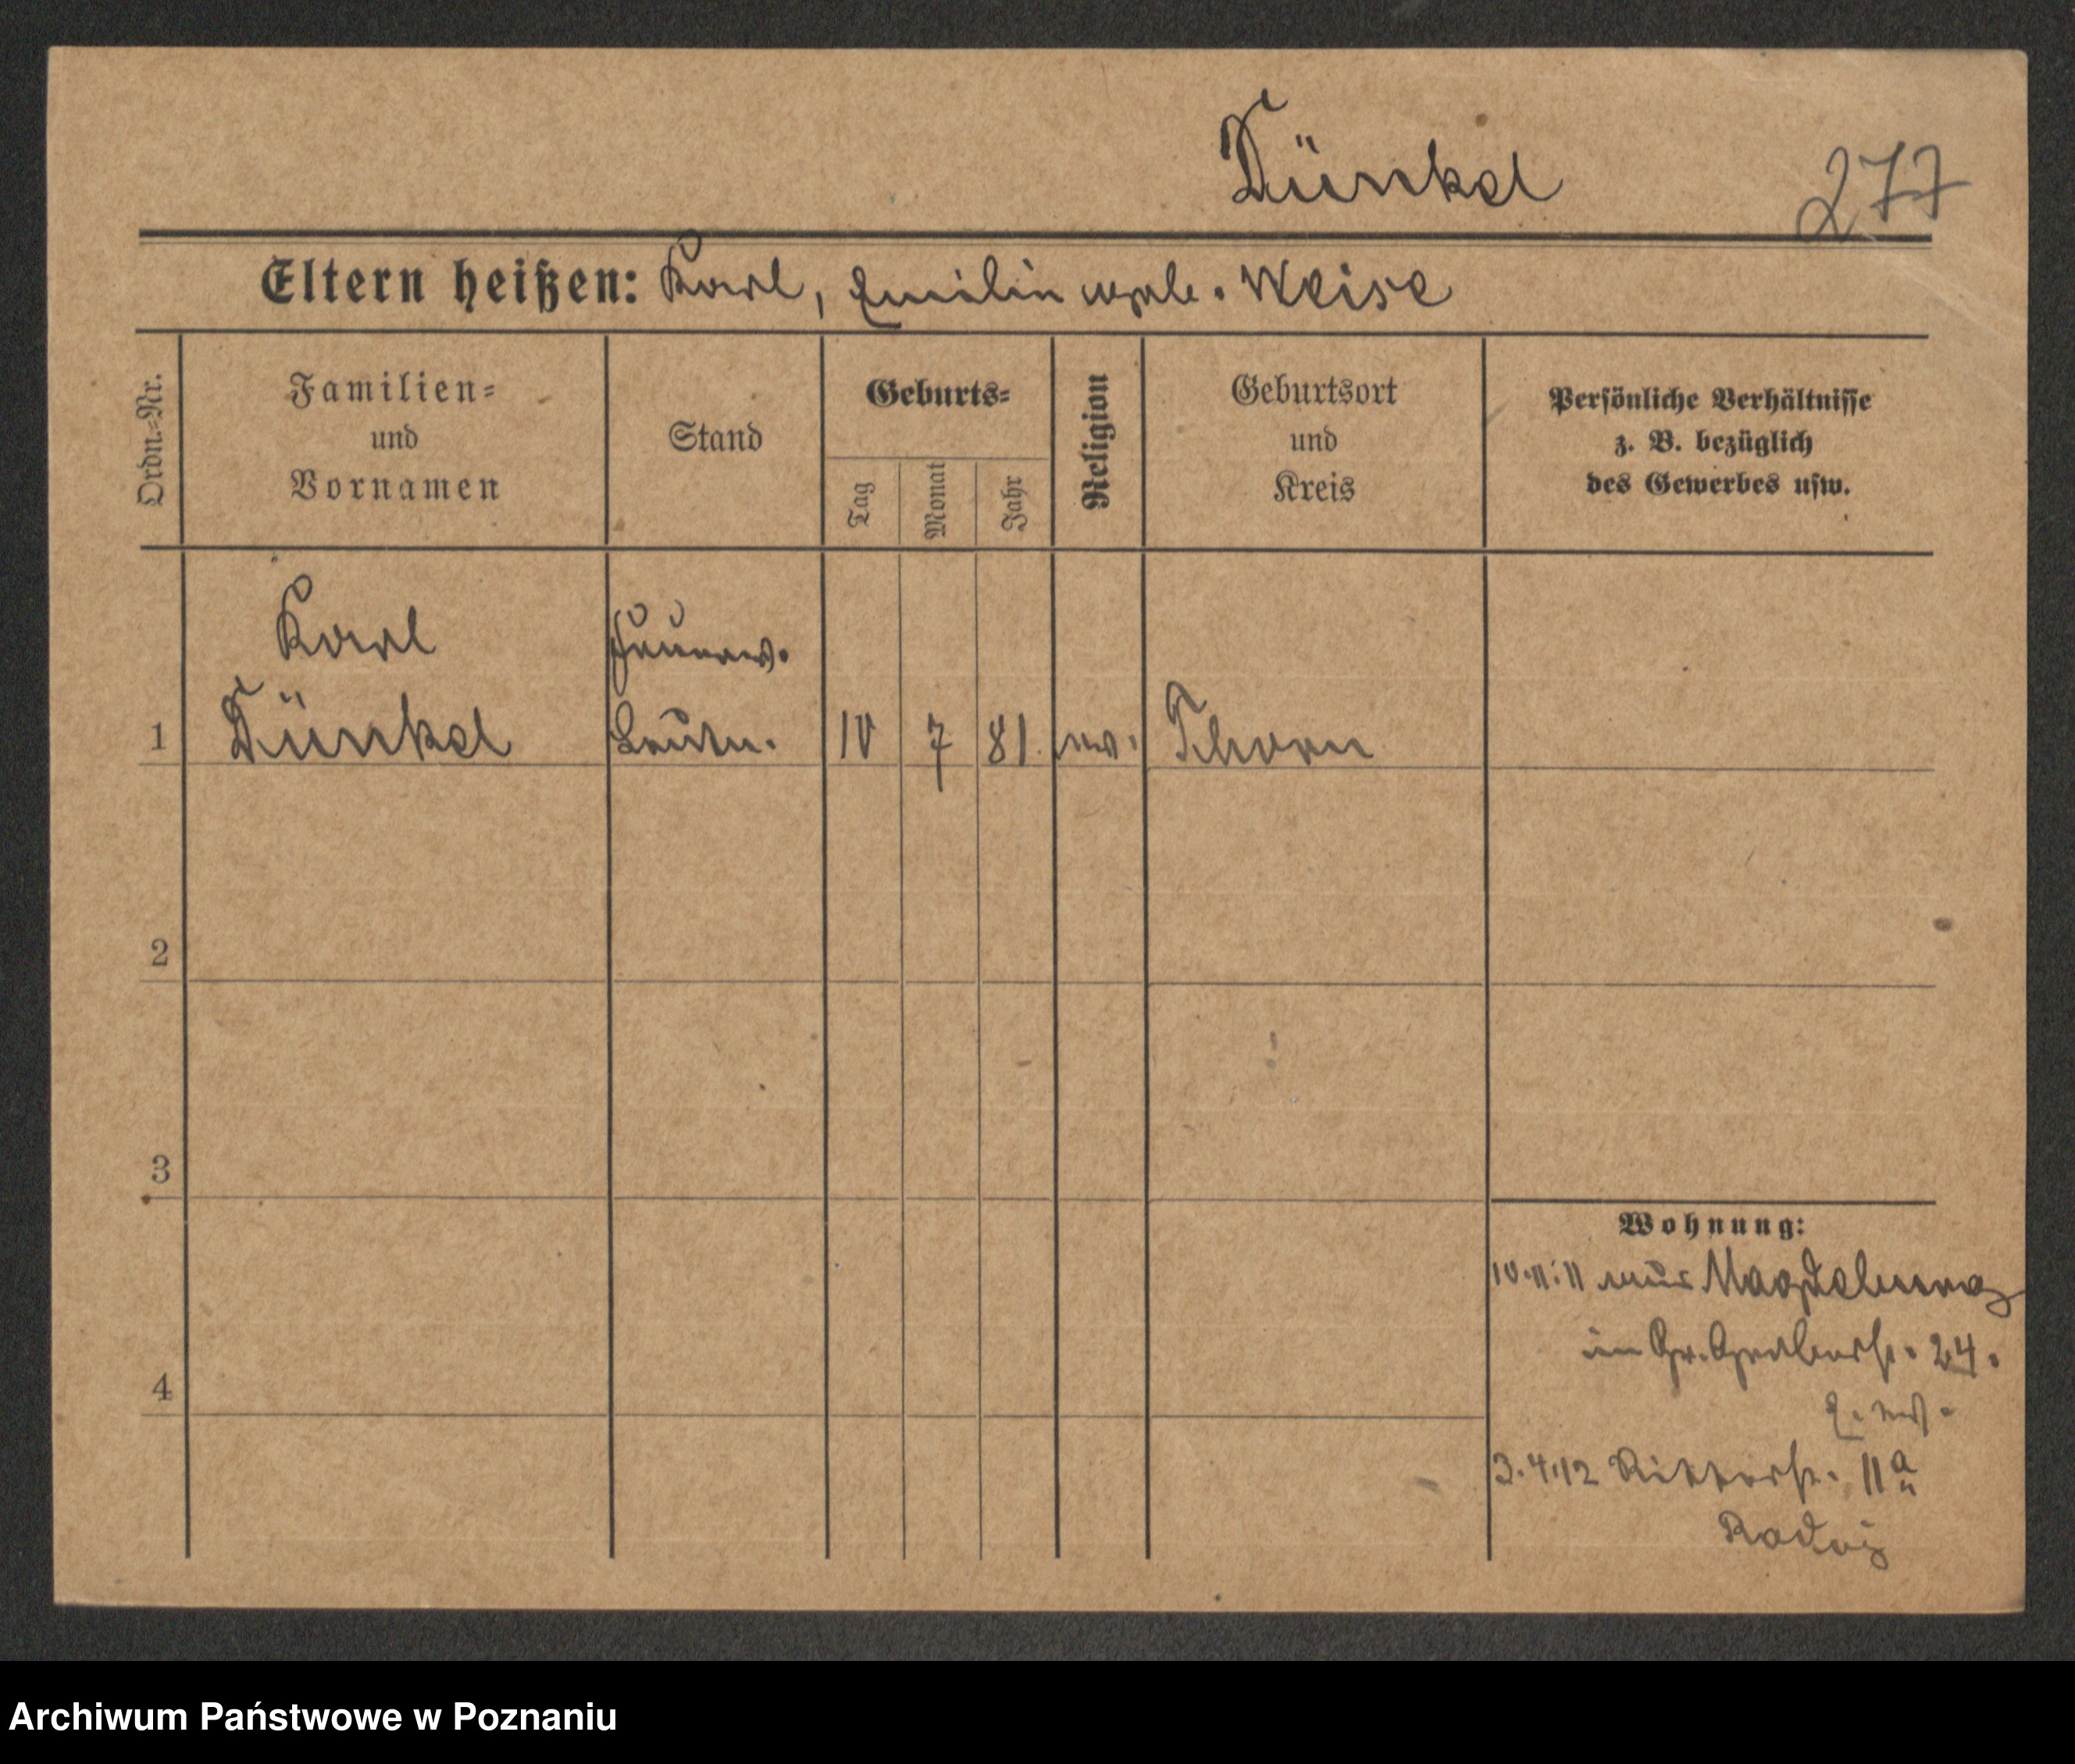 Dünkel
277
Eltern heißen: Karl, Emilie geb. Weise
Ordn.-Nr.
Familien-
und
Vornamen
Stand
Geburts-
Tag
Monat
Jahr
Religion
Geburtsort
und
Kreis
Persönliche Verhältnisse
z. B. bezüglich
des Gewerbes usw.
Karl
1 Dünkel 10 7 81 ev. Thorn
2
3
4
Wohnung:
10.11.11 aus Magdeburg
in Gr. Gerberstr. 24.
3.4.12 Ritterstr. 11a
Archiwum Państwowe w Poznaniu